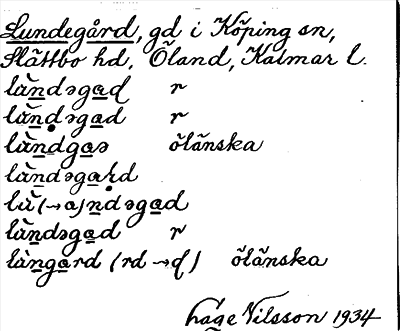 Lundegård, gd i Köping sn,
Slättbo hd, Öland, Kalmar l.
lùndəgad r
lùndəgad r
lùndgaə öländska
lùndəgaɽd
lù(→a)ndəgad
lùndəgad r
lùngard (rd→ɖ) öländska
Håge Nilsson 1934